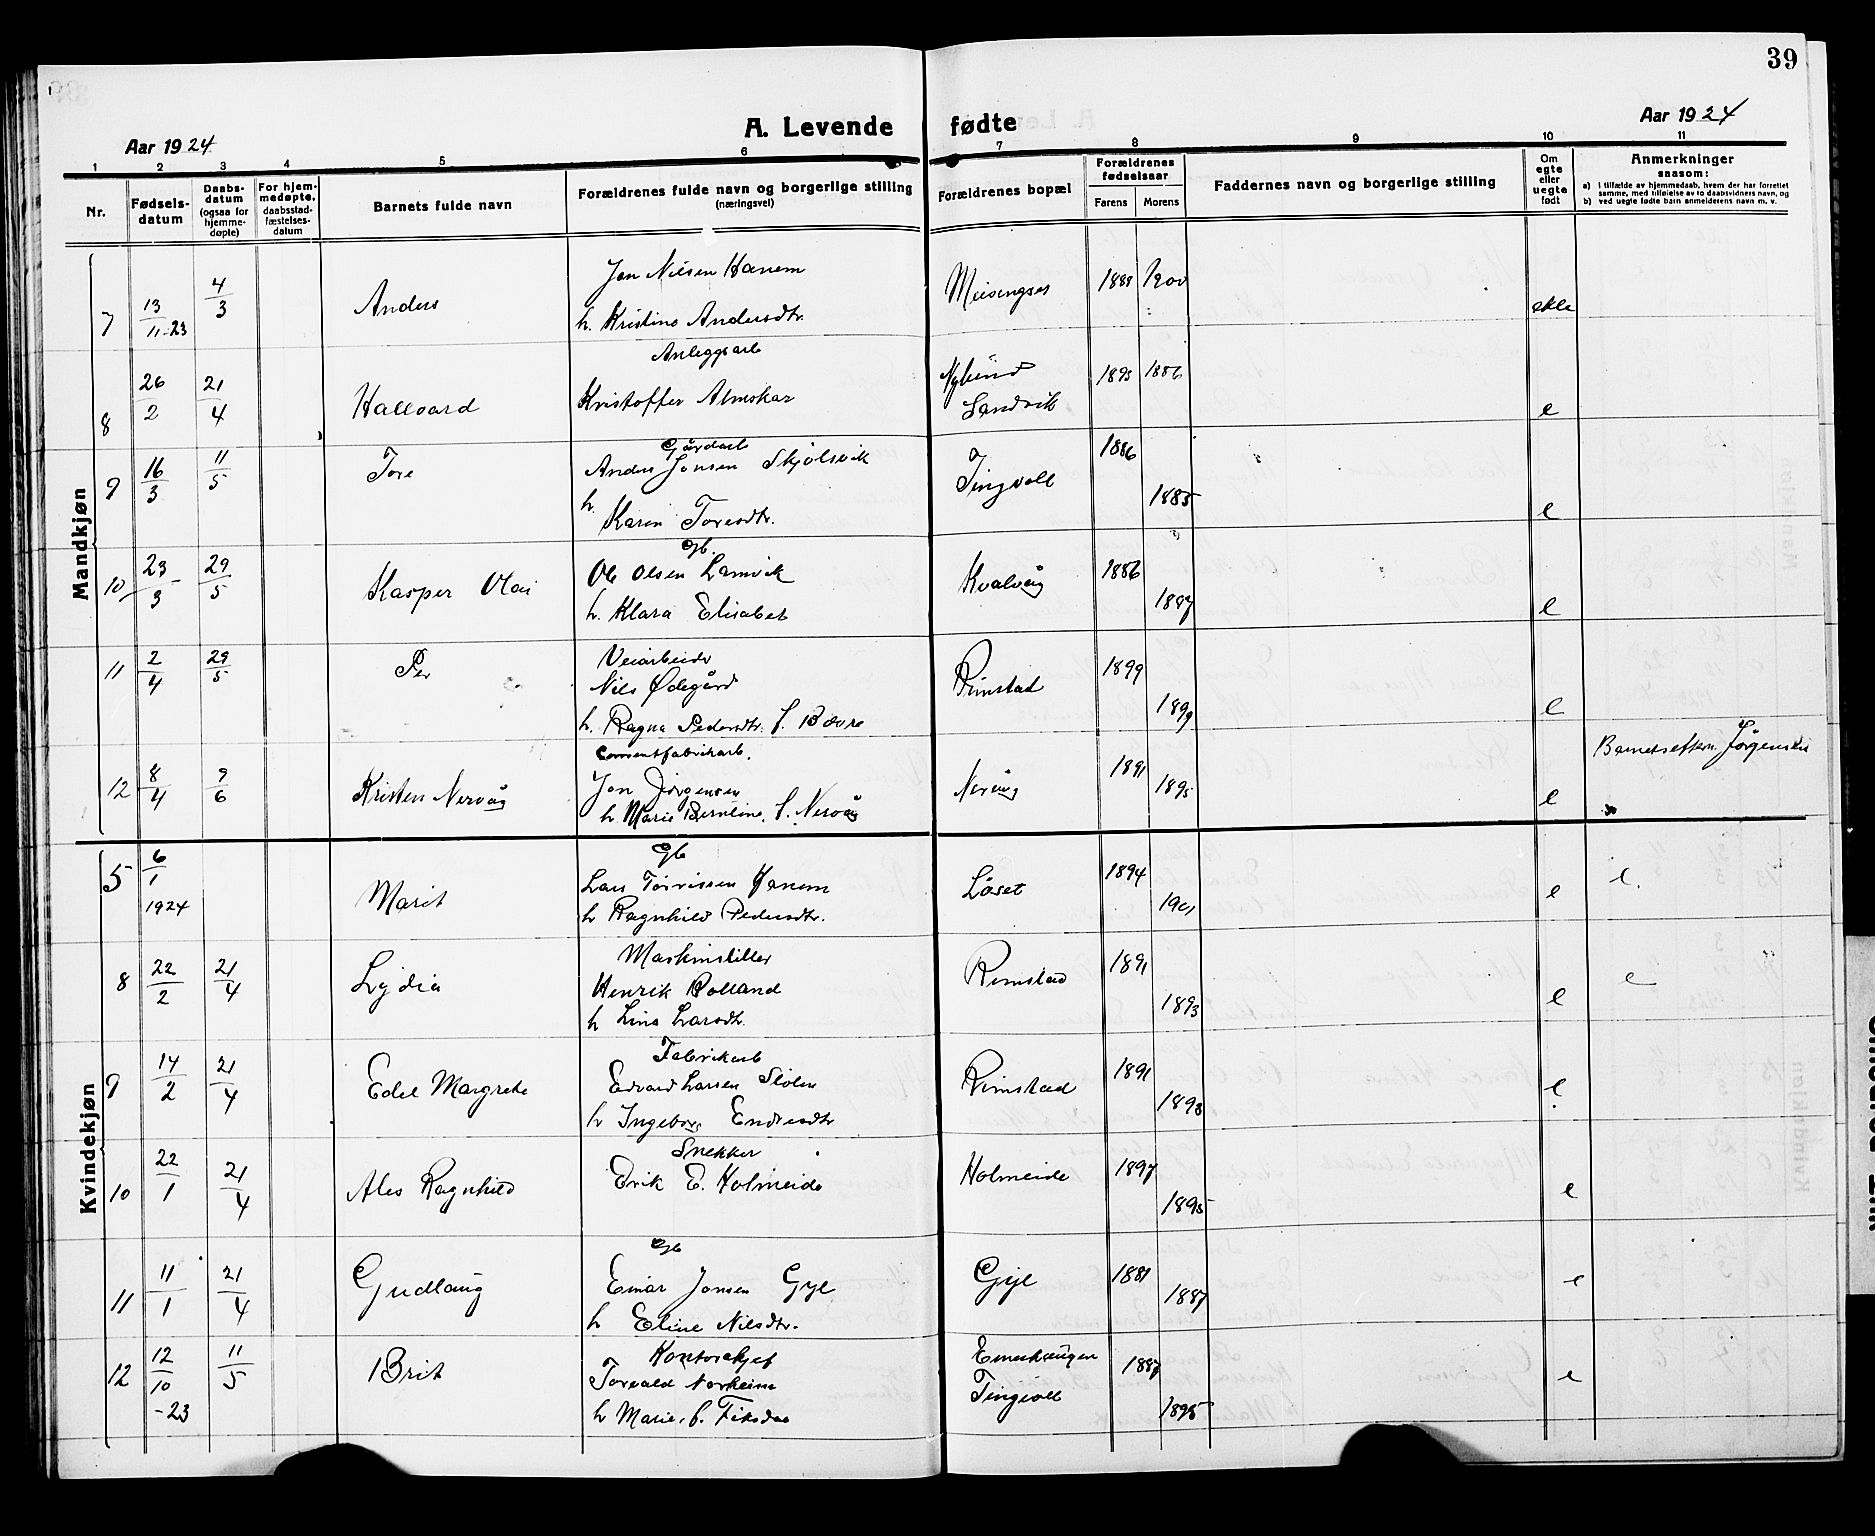 39
Aar 1924
A. Levende fødte
Aar 1924
1 2 3 4 5 6 7 8 9 10 11
Nr.
Fødsels-
datum
Daabs-
datum
(ogsaa for
hjemme-
døpte)
For hjem-
medøpte,
daabsstad-
fæstelses-
datum
Barnets fulde navn
Forældrenes fulde navn og borgerlige stilling
(næringsvei)
Forældrenes bopæl
Forældrenes
fødselsaar
Farens Morens
Faddernes navn og borgerlige stilling
Om
egte
eller
uegte
født
Anmerkninger
saasom:
a) I tilfælde av hjemmedaab, hvem der har forrettet
samme, med tilføielse av to daabsvidners navn, og
b) ved uegte fødte barn anmelderens navn m. v.
Mandkjøn
7 13/11-23 4/3 Anders Jon Nilsen Hanem 1888 1900
h. Kristine Andersdtr. ekte
Anleggsarb
8 26/2 21/4 Hallvard Kristoffer Almskar Nylund 1895 1886
Sandvik e
Gårdarb
9 16/3 11/5 Tore Anders Jonsen Skjølsvik Tingvoll 1886
h. Karen Toresdtr. 1885 e
Gb.
10 23/3 29/5 Kasper Olai Ole Olsen Lamvik Kvalvåg 1886
h. Klara Elisabet 1887 e
Veiarbeider
11 2/4 29/5 Per Nils Ødegård Rimstad 1899
h. Ragna Pedersdtr. f. Bøvre 1899 e
Cementfabrikarb. Barnets eftern. Jørgensen
12 8/4 9/6 Kristen Nervåg Jon Jørgensen Nervåg 1891 1895
h. Marie Berntine f. Nervåg e
Kvindekjøn
Gb
5 6/1 1924 Marit Lars Hanem Løset 1894 e e.
h Ragnhild Pedersdtr. 1901
Maskinstiller
8 22/2 21/4 Lydia Henrik Rolland Rimstad 1891 e
h Lina Larsdtr. 1893 e
Fabrikarb
9 14/2 21/4 Edel Margrete Edvard Larsen Stølen Rimstad 1891
h Ingeborg Endresdtr 1893 e
Snekker
10 22/1 21/4 Ales Ragnhild Erik E. Holmeide Holmeide 1897
1895 e
Gb
11 11/1 21/4 Gudlaug Einar Jonsen Gyl Gyl 1881
h Eline Nilsdtr. 1887 e
Kontorchef
12 12/10-23 11/5 Brit Torvald Norheim Tingvoll 1887
h Marie, f. Fiksdal 1895 e